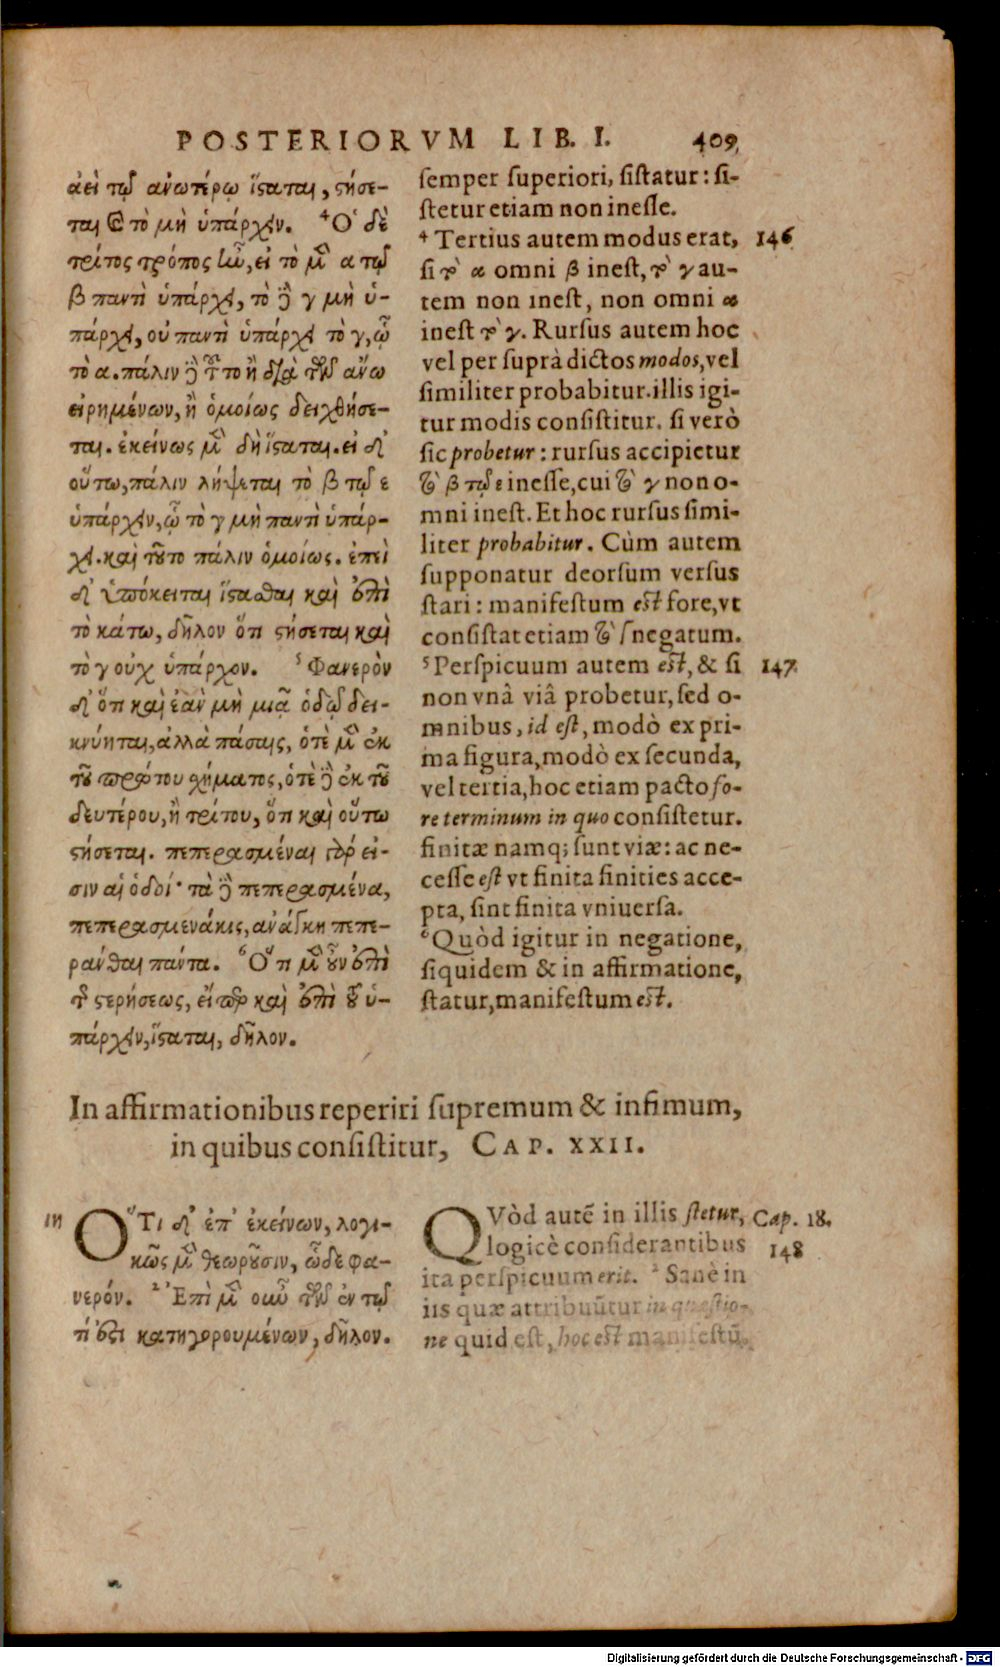 POSTERIORVM LIB. I. 409
ἀεὶ τῷ ἀνωτέρω ἵσταται, στήσε-
ται καὶ τὸ μὴ ὑπάρχειν. ⁴Ὁ δὲ
τρίτος τρόπος ἦν, εἰ τὸ μὲν α τῷ
β παντὶ ὑπάρχει, τὸ δὲ γ μὴ ὑ-
πάρχει, οὐ παντὶ ὑπάρχει τὸ γ, ᾧ
τὸ α. πάλιν δὲ τοῦτο ἢ διὰ τῶν ἄνω
εἰρημένων, ἢ ὁμοίως δειχθήσε-
ται. ἐκείνως μὲν δὴ ἵσταται. εἰ δ'
οὕτω, πάλιν λήψεται τὸ β τῷ ε
ὑπάρχειν, ᾧ τὸ γ μὴ παντὶ ὑπάρ-
χει. καὶ τοῦτο πάλιν ὁμοίως. ἐπεὶ
δ' ὑπόκειται ἵστασθαι καὶ ἐπὶ
τὸ κάτω, δῆλον ὅτι στήσεται καὶ
τὸ γ οὐχ ὑπάρχον. ⁵Φανερὸν
δ' ὅτι καὶ ἐὰν μὴ μιᾷ ὁδῷ δει-
κνύηται, ἀλλὰ πάσαις, ὁτὲ μὲν ἐκ
τοῦ πρώτου σχήματος, ὁτὲ δὲ ἐκ τοῦ
δευτέρου, ἢ τρίτου, ὅτι καὶ οὕτω
στήσεται. πεπερασμέναι γάρ εἰ-
σιν αἱ ὁδοί· τὰ δὲ πεπερασμένα,
πεπερασμενάκις, ἀνάγκη πεπε-
ράνθαι πάντα. ⁶Ὅτι μὲν οὖν ἐπὶ
τῆς στερήσεως, εἴπερ καὶ ἐπὶ τοῦ ὑ-
πάρχειν, ἵσταται, δῆλον.
semper superiori, sistatur: si-
stetur etiam non inesse.
⁴ Tertius autem modus erat, 146
si τὸ α omni β inest, τὸ γ au-
tem non inest, non omni α
inest τὸ γ. Rursus autem hoc
vel per suprà dictos modos, vel
similiter probabitur. illis igi-
tur modis consistitur. si verò
sic probetur: rursus accipietur
τὸ β τῷ ε inesse, cui τὸ γ non o-
mni inest. Et hoc rursus simi-
liter probabitur. Cùm autem
supponatur deorsum versus
stari: manifestum est fore, vt
consistat etiam τὸ ſ negatum.
⁵ Perspicuum autem est, & si 147
non vnâ viâ probetur, sed o-
mnibus, id est, modò ex pri-
ma figura, modò ex secunda,
vel tertia, hoc etiam pacto fo-
re terminum in quo consistetur.
finitæ namq; sunt viæ: ac ne-
cesse est vt finita finities acce-
pta, sint finita vniuersa.
⁶ Quòd igitur in negatione,
siquidem & in affirmatione,
statur, manifestum est.
In affirmationibus reperiri supremum & infimum,
in quibus consistitur, CAP. XXII.
ιη ὍΤΙ δ' ἐπ' ἐκείνων, λογι-
κῶς μὲν θεωροῦσιν, ὧδε φα-
νερόν. ²Ἐπὶ μὲν οὖν τῶν ἐν τῷ
τί ἐστι κατηγορουμένων, δῆλον.
QVòd autẽ in illis stetur, Cap. 18.
logicè considerantibus 148
ita perspicuum erit. ² Sanè in
iis quæ attribuũtur in quæstio-
ne quid est, hoc est manifestũ.
Digitalisierung gefördert durch die Deutsche Forschungsgemeinschaft - DFG